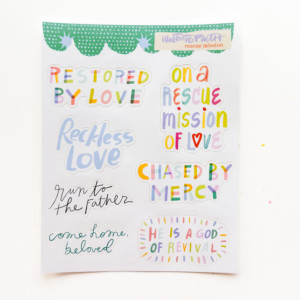 rescue mission
RESTORED
BY LOVE
on a
RESCUE
mission
OF LOVE
Reckless
LOVE
CHASED BY
MERCY
run to
the Father
come home,
beloved
HE IS A GOD
OF REVIVAL